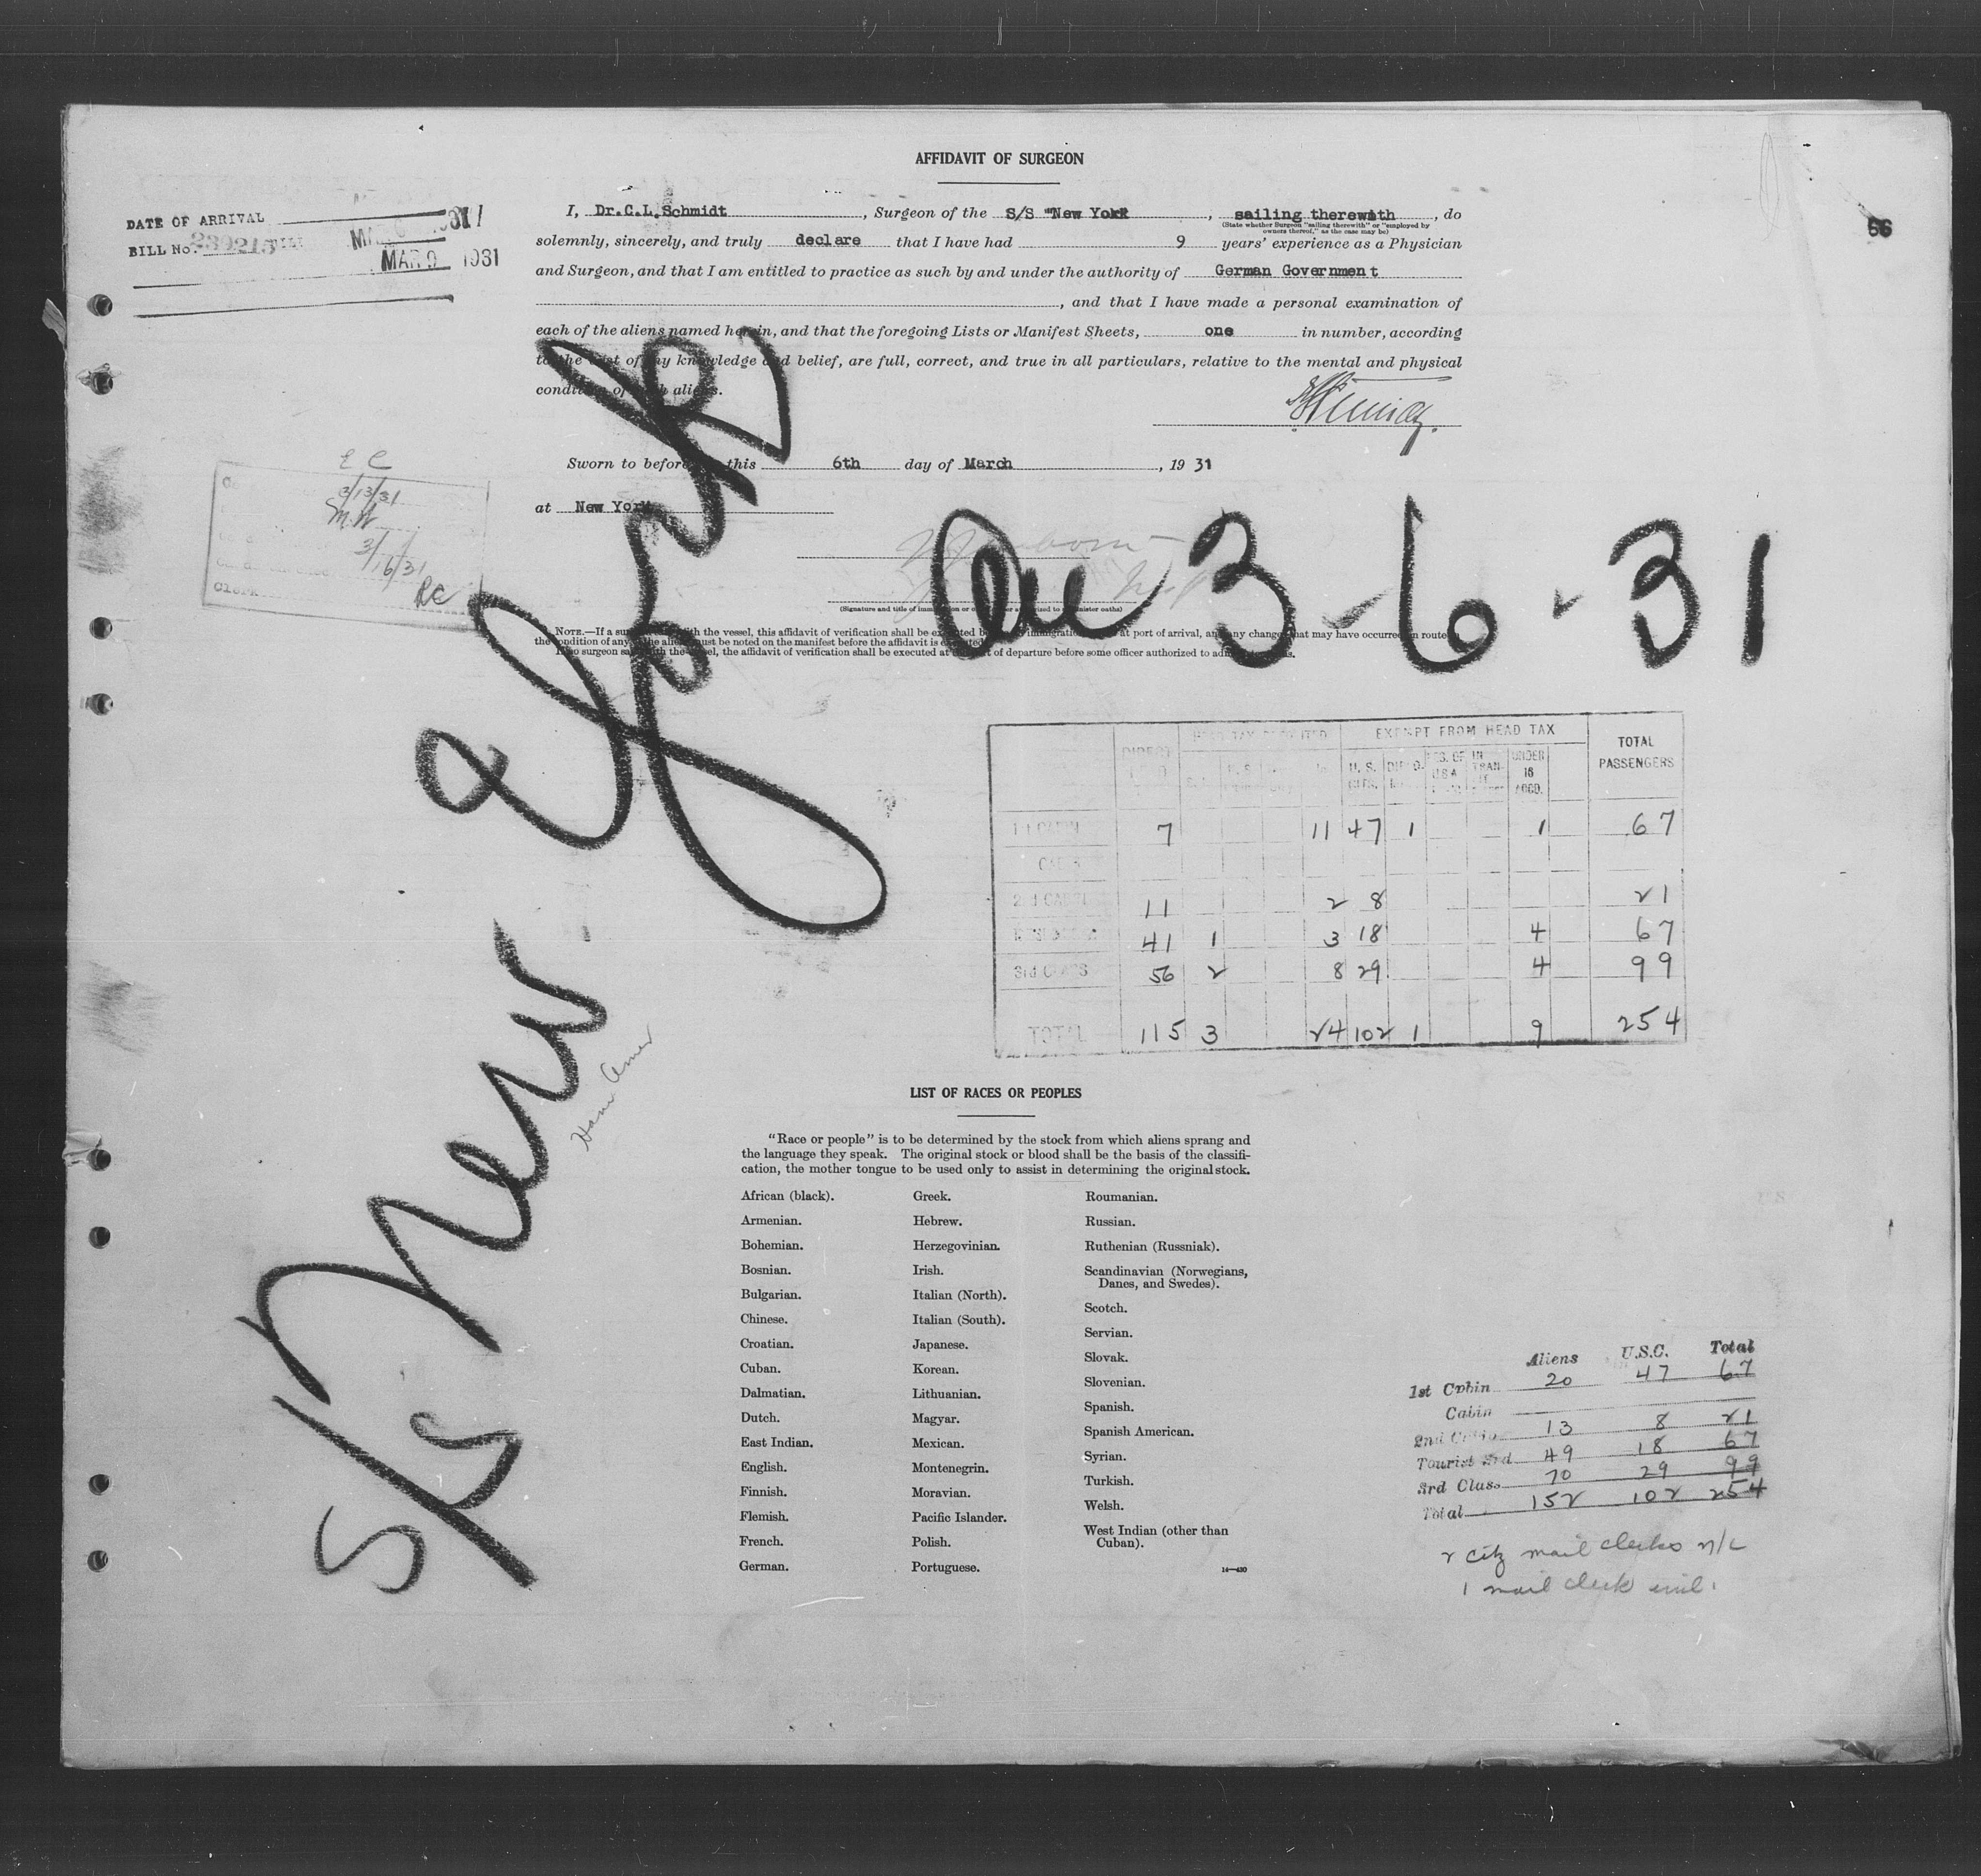 AFFIDAVIT OF SURGEON
DATE OF ARRIVAL
BILL No. 239215
MAR 9 1931
66
I, Dr.C.L.Schmidt, Surgeon of the S/S "New York, sailing therewith, do
(State whether Surgeon "sailing therewith" or "employed by
owners thereof," as the case may be)
solemnly, sincerely, and truly declare that I have had 9 years' experience as a Physician
and Surgeon, and that I am entitled to practice as such by and under the authority of German Government
, and that I have made a personal examination of
each of the aliens named herein, and that the foregoing Lists or Manifest Sheets, one in number, according
to the best of my knowledge and belief, are full, correct, and true in all particulars, relative to the mental and physical
condition of such aliens.
Sworn to before this 6th day of March, 19 31
at New York
E C
3/13/31
M.W
3/16/31
Clerk RC
(Signature and title of immigration or other authorized to administer oaths)
NOTE.—If a surgeon with the vessel, this affidavit of verification shall be executed immigration at port of arrival, and any change that may have occurred en route
the condition of any of the aliens must be noted on the manifest before the affidavit is executed
If no surgeon sails with the vessel, the affidavit of verification shall be executed at port of departure before some officer authorized to administer oaths.
S/S New York
3-6-31
Ham Amer
HEAD TAX DEPOSITED EXEMPT FROM HEAD TAX TOTAL PASSENGERS
U. S. UNDER 16 ACCD.
7 11 47 1 1 67
2nd CABIN 11 2 8 21
41 1 3 18 4 67
3rd CLASS 56 2 8 29 4 99
TOTAL 115 3 24 102 1 9 254
LIST OF RACES OR PEOPLES
"Race or people" is to be determined by the stock from which aliens sprang and
the language they speak. The original stock or blood shall be the basis of the classifi-
cation, the mother tongue to be used only to assist in determining the original stock.
African (black).
Armenian.
Bohemian.
Bosnian.
Bulgarian.
Chinese.
Croatian.
Cuban.
Dalmatian.
Dutch.
East Indian.
English.
Finnish.
Flemish.
French.
German.
Greek.
Hebrew.
Herzegovinian.
Irish.
Italian (North).
Italian (South).
Japanese.
Korean.
Lithuanian.
Magyar.
Mexican.
Montenegrin.
Moravian.
Pacific Islander.
Polish.
Portuguese.
Roumanian.
Russian.
Ruthenian (Russniak).
Scandinavian (Norwegians,
Danes, and Swedes).
Scotch.
Servian.
Slovak.
Slovenian.
Spanish.
Spanish American.
Syrian.
Turkish.
Welsh.
West Indian (other than
Cuban).
14—430
Aliens U.S.C. Total
1st Cabin 20 47 67
Cabin
2nd Cabin 13 8 21
Tourist 3rd 49 18 67
3rd Class 70 29 99
Total 152 102 254
2 citz mail clerks n/c
1 mail clerk